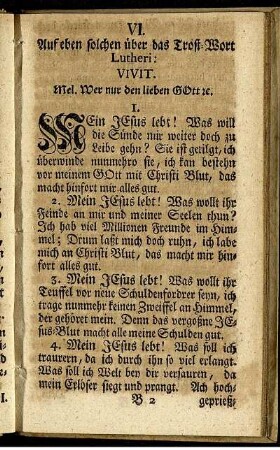 VI.
Auf eben solchen über das Trost-Wort
Lutheri:
VIVIT.
Mel. Wer nur den lieben GOtt ꝛc.
I.
MEin JEsus lebt! Was will
die Sünde mir weiter doch zu
Leibe gehn? Sie ist getilgt, ich
überwinde nunmehro sie, ich kan bestehn
vor meinem GOtt mit Christi Blut, das
macht hinfort mir alles gut.
2. Mein JEsus lebt! Was wollt ihr
Feinde an mir und meiner Seelen thun?
Ich hab viel Millionen Freunde im Him-
mel; Drum laßt mich doch ruhn, ich labe
mich an Christi Blut, das macht mir hin-
fort alles gut.
3. Mein JEsus lebt! Was wollt ihr
Teuffel vor neue Schuldenfordrer seyn, ich
trage nunmehr keinen Zweiffel an Himmel,
der gehöret mein. Denn das vergoßne JE-
sus-Blut macht alle meine Schulden gut.
4. Mein JEsus lebt! Was soll ich
traurern, da ich durch ihn so viel erlangt.
Was soll ich Welt bey dir versauren, da
mein Erlöser siegt und prangt. Ach hoch-
B 2 geprießt,